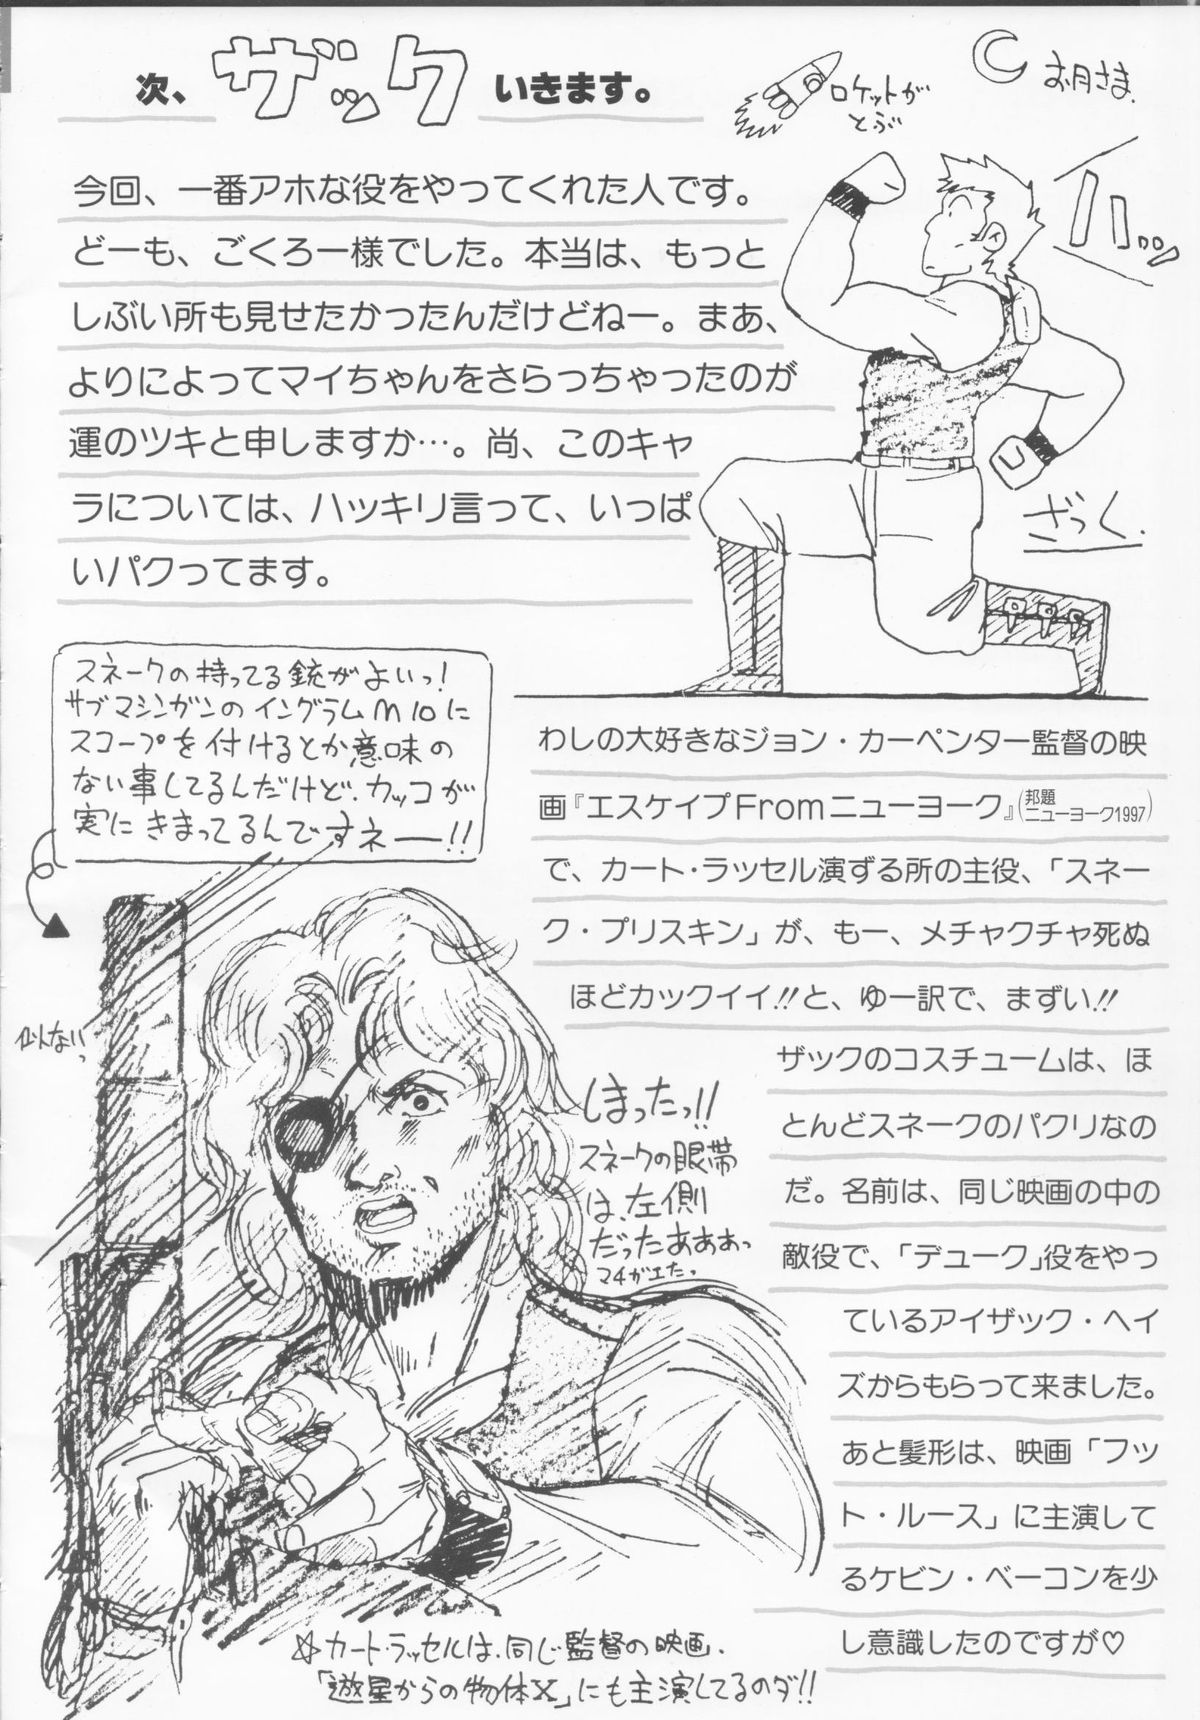 次、ザック いきます。
ロケットが
とぶ
お月さま
今回、一番アホな役をやってくれた人です。
どーも、ごくろー様でした。本当は、もっと
しぶい所も見せたかったんだけどねー。まあ、
よりによってマイちゃんをさらっちゃったのが
運のツキと申しますか…。尚、このキャ
ラについては、ハッキリ言って、いっぱ
いパクってます。
ざっく.
スネークの持ってる銃がよいっ!
サブマシンガンのイングラムM10に
スコープを付けるとか意味の
ない事してるんだけど、カッコが
実にきまってるんですネー!!
わしの大好きなジョン・カーペンター監督の映
画『エスケイプFromニューヨーク』(邦題 ニューヨーク1997)
で、カート・ラッセル演ずる所の主役、「スネー
ク・プリスキン」が、もー、メチャクチャ死ぬ
ほどカックイイ!!と、ゆー訳で、まずい!!
ザックのコスチュームは、ほ
とんどスネークのパクリなの
だ。名前は、同じ映画の中の
敵役で、「デューク」役をやっ
ているアイザック・ヘイ
ズからもらって来ました。
あと髪形は、映画「フッ
ト・ルース」に主演して
るケビン・ベーコンを少
し意識したのですが♡
似ないっ
しまったっ!!
スネークの眼帯
は、左側
だったあああっ
マチガエた。
☆カート・ラッセルは、同じ監督の映画、
「遊星からの物体X」にも主演してるのダ!!